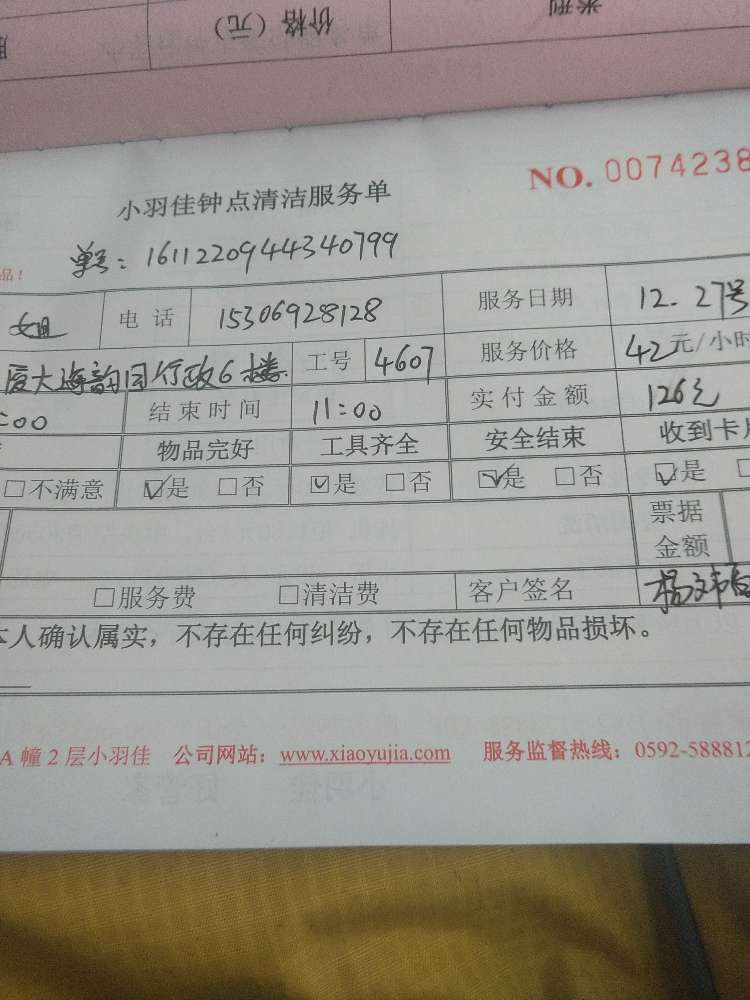 价格（元）
类型
NO. 0074238
小羽佳钟点清洁服务单
单号：1611220944340799
品！
姐 电话 15306928128 服务日期 12.27号
厦大海韵园行政6楼 工号 4607 服务价格 42元/小时
:00 结束时间 11:00 实付金额 126元
物品完好 工具齐全 安全结束 收到卡片
□不满意 ☑是 □否 ☑是 □否 ☑是 □否 ☑是
票据
金额
□服务费 □清洁费 客户签名
本人确认属实，不存在任何纠纷，不存在任何物品损坏。
A幢2层小羽佳 公司网站：www.xiaoyujia.com 服务监督热线：0592-588812